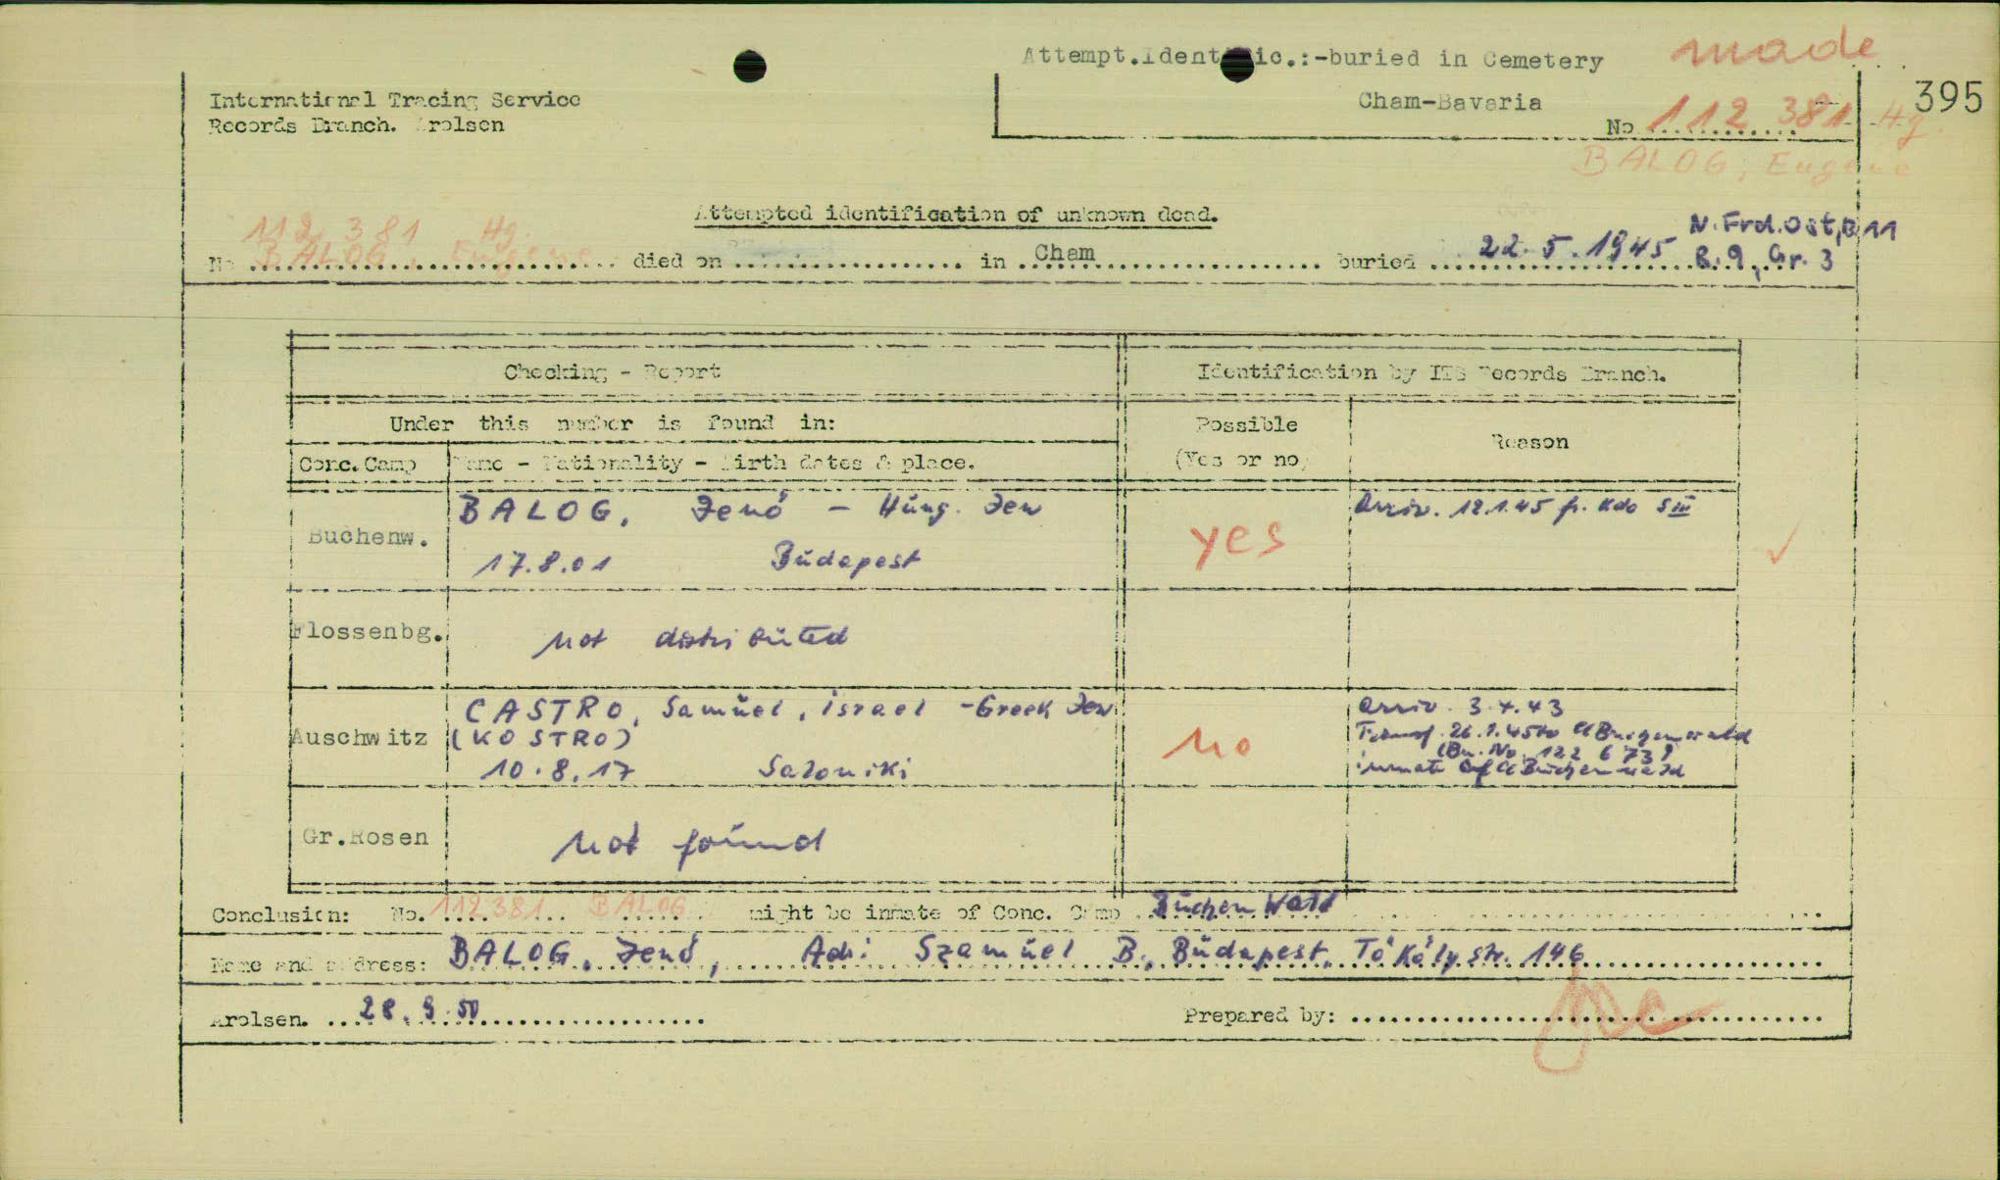 Attempt.Identific.:-buried in Cemetery made
Cham-Bavaria 395
International Tracing Service
Records Branch. Arolsen
No 112 381 Hg.
BALOG, Eugene
Attempted identification of unknown dead.
112 381 Hg.
No BALOG, Eugene died on in Cham buried 22.5.1945 N.Frd.Ost, B 11
R.9, Gr. 3
Checking - Report Identification by ITS Records Branch.
Under this number is found in: Possible (Yes or no) Reason
Conc.Camp Name - Nationality - Birth dates & place.
Buchenw. BALOG, Jenö - Hung. Jew yes Arriv. 12.1.45 fr. Kdo S III
17.8.01 Budapest
Flossenbg. not distributed
Auschwitz CASTRO, Samuel, israel - Greek Jew no Arriv. 3.4.43
(KOSTRO) Transf. 26.1.45 to Cl Buchenwald
(Bu. No. 122 673)
10.8.17 Saloniki inmate of Cl Buchenwald
Gr.Rosen not found
Conclusion: No. 112381 BALOG might be inmate of Conc. Camp Buchenwald
Name and address: BALOG, Jenö, Adr: Szamuel B., Budapest, Tököly str. 146
Arolsen. 28.9.50 Prepared by: